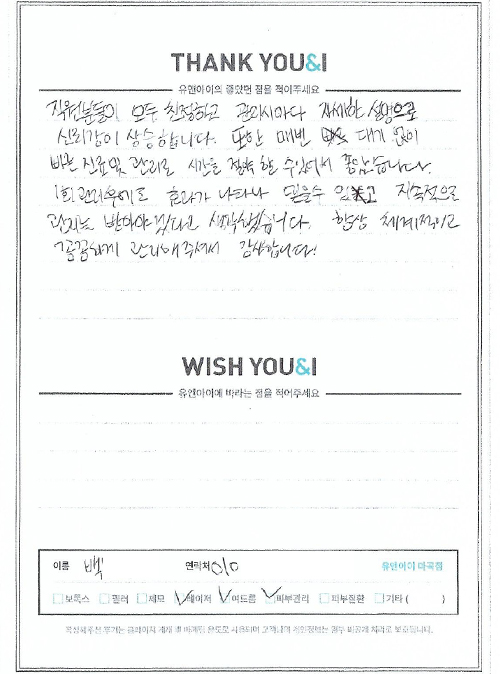 THANK YOU&I
유앤아이의 좋았던 점을 적어주세요
직원분들이 모두 친절하고 관리시마다 자세한 설명으로
신뢰감이 상승합니다. 또한 매번 대기 없이
바른 진료및 관리로 시간을 절약 할 수있어서 좋았습니다.
1회 관리후에도 효과가 나타나 믿을수 있고 지속적으로
관리는 받아야 겠다고 생각했습니다. 항상 체계적이고
꼼꼼하게 관리해주셔서 감사합니다!
WISH YOU&I
유앤아이에 바라는 점을 적어주세요
이름 백 연락처 010 유앤아이 마곡점
보톡스 필러 제모 레이저 여드름 피부관리 피부질환 기타 ( )
작성해주신 후기는 홈페이지 게재 및 마케팅 용도로 사용되며 고객님의 개인정보는 일부 비공개 처리로 보호됩니다.